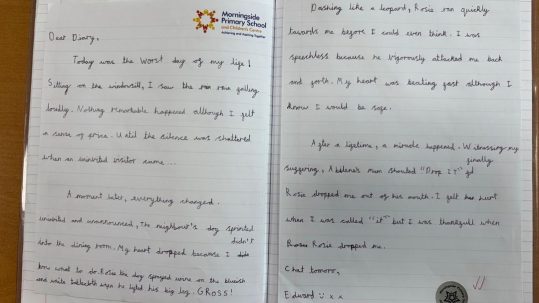 Morningside
Primary School
and Children's Centre
Achieving and Aspiring Together
Dear Diary,
Today was the worst day of my life!
Sitting on the windowsill, I saw the rain falling
loudly. Nothing remarkable happened although I felt
a sense of Until the silence was shattered
when an uninvited visitor came...
A moment later, everything changed.
Uninvited and unannounced, the neighbour's dog sprinted
into the dining room. My heart dropped because I didn't
know what to do. Rosie the dog sprayed urine on the blueish
and white when he lifted his big leg. GROSS!
Dashing like a leopard, Rosie ran quickly
towards me before I could even think. I was
speechless because he vigorously attacked me back
and forth. My heart was beating fast although I
know I would be safe.
After a lifetime, a miracle happened. Witnessing my
suffering, mum shouted "Drop it!" finally
Rosie dropped me out of her mouth. I felt hurt
when I was called "it" but I was thankfull when
Rosie dropped me.
Chat tomorro,
Edward x x